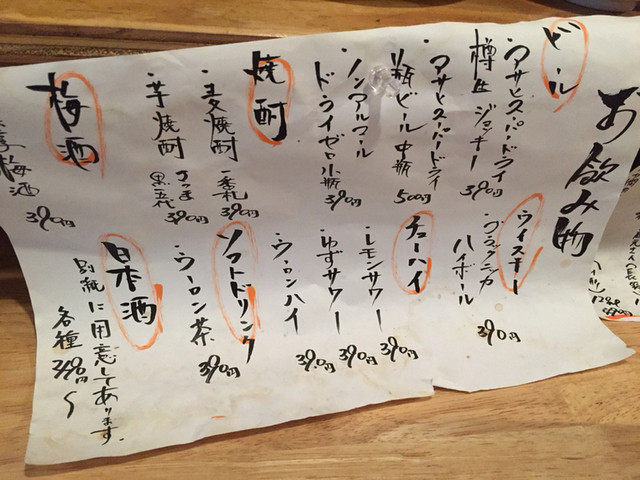 お飲み物
ビール
・アサヒスーパードライ
樽生 ジョッキー 390円
・アサヒスーパードライ
瓶ビール 中瓶 500円
・ノンアルコール
ドライゼロ小瓶 390円
焼酎
・麦焼酎 一番札 390円
・芋焼酎 さつま 390円
黒五代
梅酒
梅酒 390円
ウイスキー
・ブラックニッカ
ハイボール 390円
チューハイ
・レモンサワー 390円
・ゆずサワー 390円
・ウーロンハイ 390円
ソフトドリンク
・ウーロン茶 390円
日本酒
別紙に用意してあります。
各種 390円〜